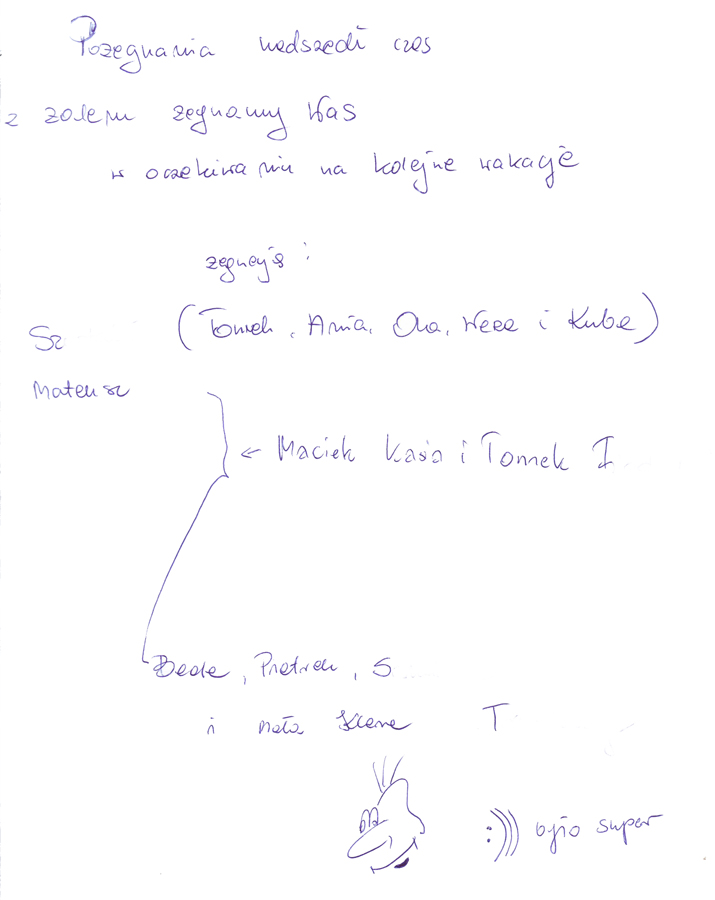 Pożegnania nadszedł czas
z żalem żegnamy Was
w oczekiwaniu na kolejne wakacje
żegnają:
(Tomek, Ania, Ola, Wera i Kuba)
Sz
Mateusz
← Maciek Kasia i Tomek I
Beata, Piotrek, S
i mała T
:))) było super